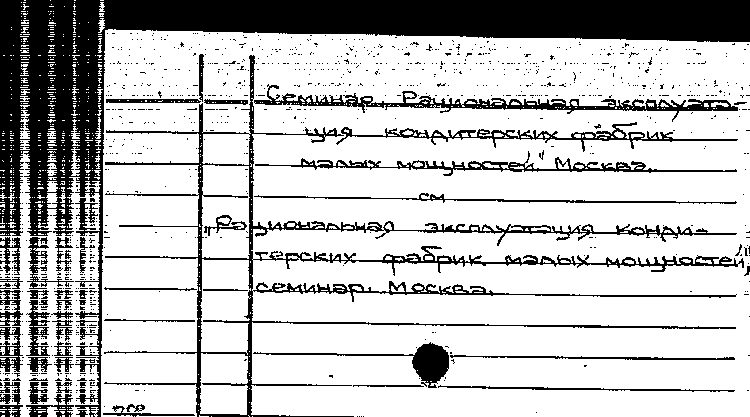 Семинар „Рациональная эксплуата-
ция кондитерских фабрик
малых мощностей". Москва.
см
„Рациональная эксплуатация конди-
терских фабрик малых мощностей",
семинар. Москва.